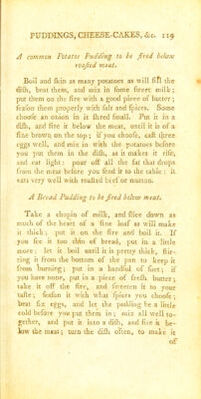 PUDDINGS, CHEESE-CAKES, &c. 119
A common Potatoe Pudding to be fired below
roasted meat.
Boil and skin as many potatoes as will fill the
dish, beat them, and mix in some sweet milk;
put them on the fire with a good piece of butter;
season them properly with salt and spices. Some
choose an onion in it shred small. Put it in a
dish, and fire it below the meat, until it is of a
fine brown on the top; if you choose, cast three
eggs well, and mix in with the potatoes before
you put them in the dish, as it makes it rise,
and eat light: pour off all the fat that drops
from the meat before you send it to the table: it
eats very well with roasted beef or mutton.
A Bread Pudding to be fired below meat.
Take a chopin of milk, and slice down as
much of the heart of a fine loaf as will make
it thick; put it on the fire and boil it. If
you see it too thin of bread, put in a little
more: let it boil until it is pretty thick, stir-
ring it from the bottom of the pan to keep it
from burning; put in a handful of suet; if
you have none, put in a piece of fresh butter;
take it off the fire, and sweeten it to your
taste; season it with what spices you choose;
beat six eggs, and let the pudding be a little
cold before you put them in; mix all well to-
gether, and put it into a dish, and fire it be-
low the meat; turn the dish often, to make it
of